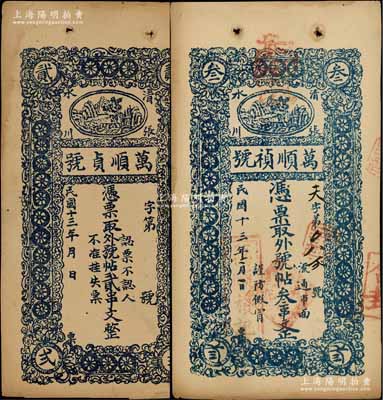 上海阳明拍卖
www.sypm.com.cn
貳
貳
清水
張川
萬順貞號
字第 號
憑票取外號帖貳串文整
認票不認人
不准挂失票
民國十三年 月 日
貳
叁
叁
清水
張川
萬順禎號
天字第 號
憑票取外號帖叁串文整
流通市面
謹防假冒
民國十三年 月 日
叁
叁
上海阳明拍卖